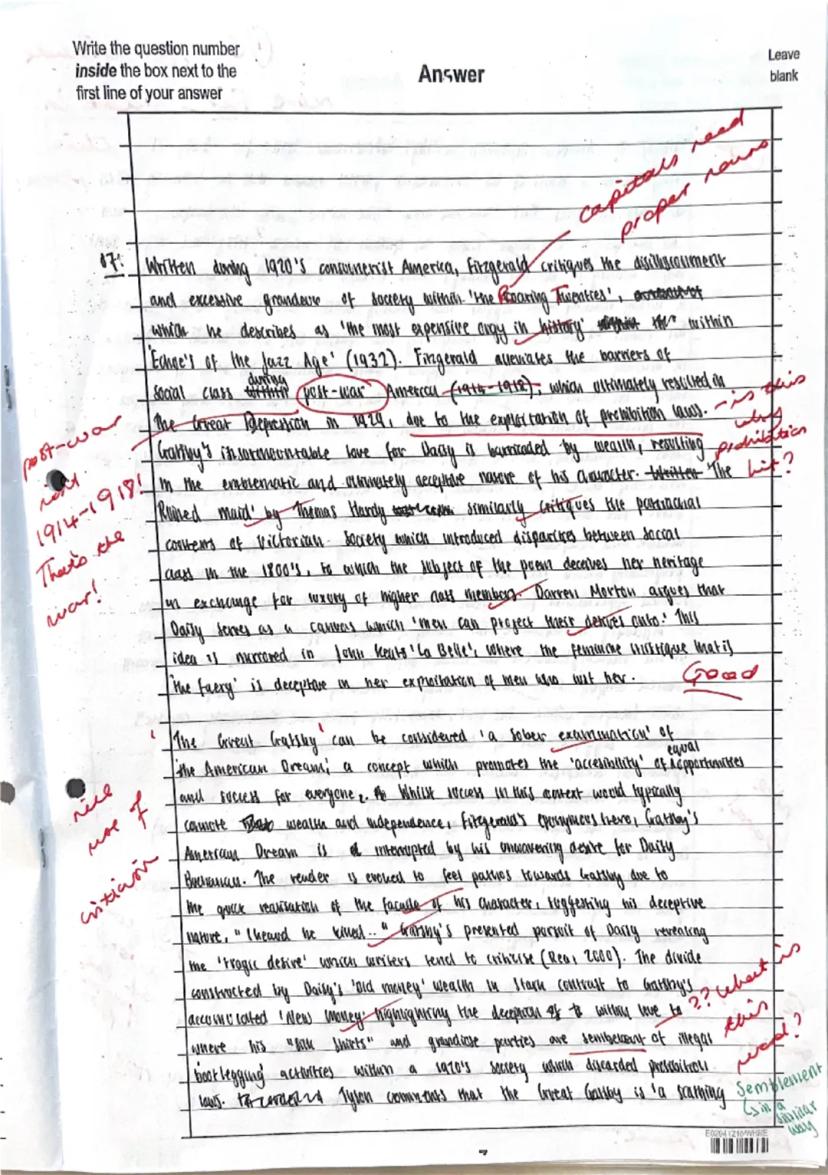 Write the question number
inside the box next to the
first line of your answer
Answer
Leave
blank
capitals need
proper nouns
07. Written during 1920's consumerist America, Fitzgerald critiques the disillusionment
and excessive grandeur of society within 'the Roaring Twenties',
which he describes as 'the most expensive orgy in history' within
'Echoe's of the Jazz Age' (1932). Fitzgerald the barriers of
social class during post-war America (1914-1918), which ultimately resulted in
The Great Depression in 1929, due to the exploitation of prohibition laws.
- is this
why
prohibition
hit?
post-war
not
1914-1918!
That's the
war!
Gatsby's insurmountable love for Daisy is barricaded by wealth, resulting
in the emblematic and ultimately deceptive nature of his character. 'The
Ruined maid' by Thomas Hardy similarly critiques the patriachal
contexts of Victorian Society which introduced disparities between social
class in the 1800's, to which the subject of the poem deceives her heritage
in exchange for luxury of higher class members. Darren Morton argues that
Daisy serves as a canvas which 'men can project their desires onto.' This
idea is mirrored in John Keats 'La Belle', where the feminine mystique that is
'the faery' is deceptive in her exploitation of men who lust her.
Good
'The Great Gatsby' can be considered 'a sober examination' of
the American Dream,' a concept which promotes the 'accessibility' of equal opportunities
and success for everyone. Whilst success in this context would typically
connote wealth and independence, Fitzgerald's eponymous hero, Gatsby's
American Dream is interrupted by his unwavering desire for Daisy
Buchanan. The reader is evoked to feel pathos towards Gatsby due to
the quick realisation of the facade of his character, suggesting his deceptive
nature, "I heard he killed.." Gatsby's presented pursuit of Daisy revealing
the 'tragic desire' which writers tend to criticise (Rea, 2000). The divide
constructed by Daisy's 'old money' wealth in stark contrast to Gatsby's
accumulated 'New money' highlighting the deception of
where his "silk shirts" and grandiose parties are semblecant of illegal
'bootlegging' activities within a 1920's society which discarded prohibition
laws. Tyson comments that the Great Gatsby is 'a scathing
nice
use of
criticism
?? What is
this
word?
Semblement
↳ in a
similar
way